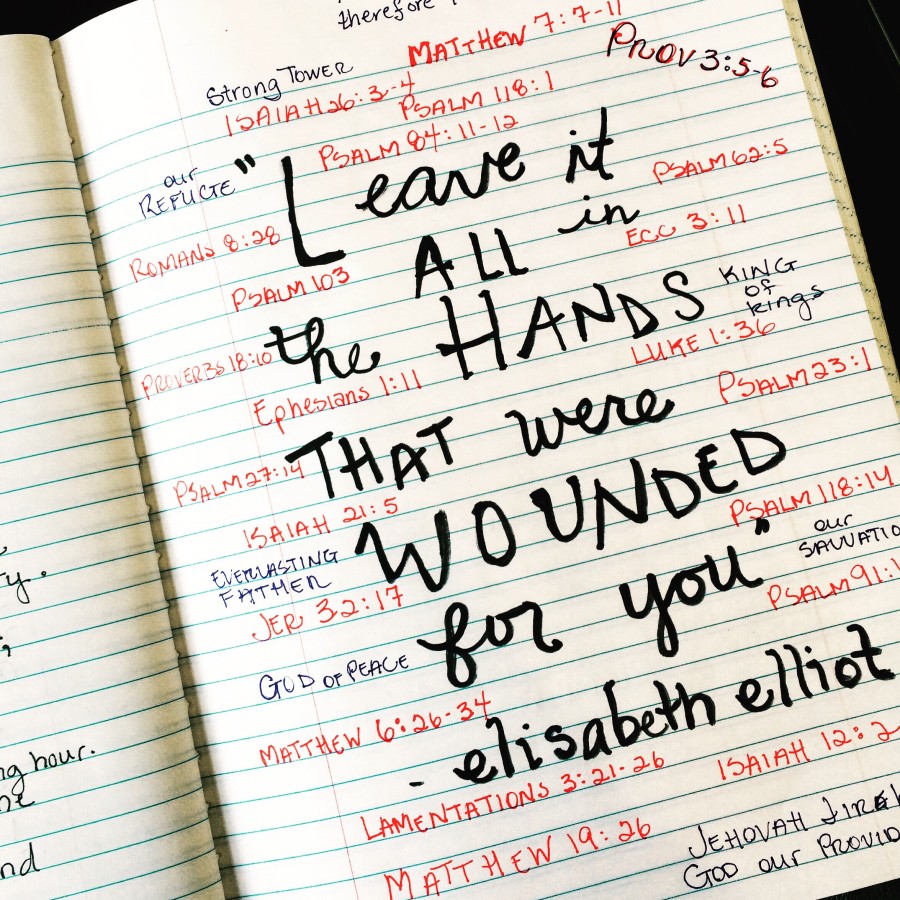 therefore
MATTHEW 7:7-11
PROV 3:5-6
Strong Tower
ISAIAH 26:3-4
PSALM 118:1
PSALM 84:11-12
our
REFUGE
"Leave it
PSALM 62:5
ROMANS 8:28
ALL in
ECC 3:11
PSALM 103
the HANDS
KING
OF
kings
PROVERBS 18:10
LUKE 1:36
Ephesians 1:11
PSALM 23:1
THAT were
PSALM 27:14
ISAIAH 21:5
WOUNDED
PSALM 118:14
EVERLASTING
FATHER
our
JER 32:17
for you"
PSALM 91:1
GOD OF PEACE
MATTHEW 6:26-34
- elisabeth elliot
LAMENTATIONS 3:21-26
ISAIAH 12:2
MATTHEW 19:26
JEHOVAH
GOD our
ty.
;
hour.